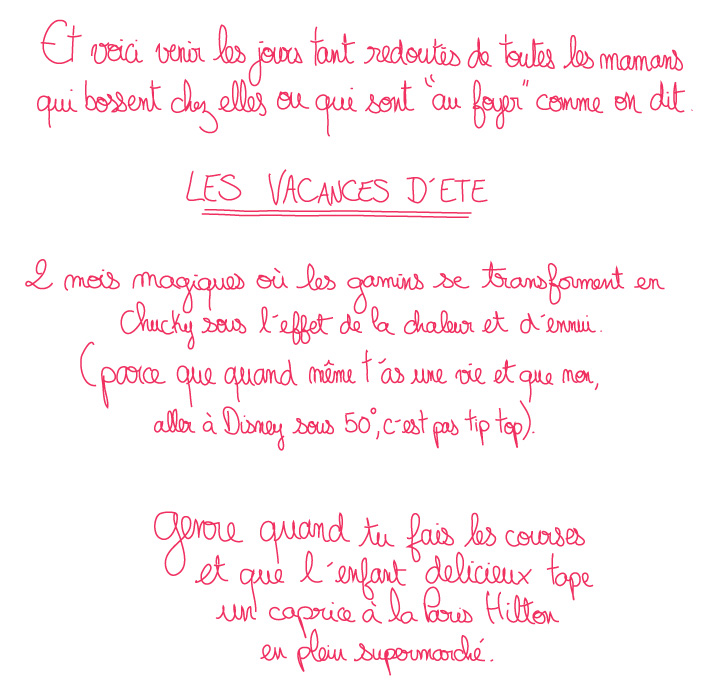 Et voici venir les jours tant redoutés de toutes les mamans
qui bossent chez elles ou qui sont "au foyer" comme on dit.
LES VACANCES D'ETE
2 mois magiques où les gamins se transforment en
Chucky sous l'effet de la chaleur et d'ennui.
(parce que quand même t'as une vie et que non,
aller à Disney sous 50°, c'est pas tip top).
Genre quand tu fais les courses
et que l'enfant delicieux tape
un caprice à la Paris Hilton
en plein supermarché.